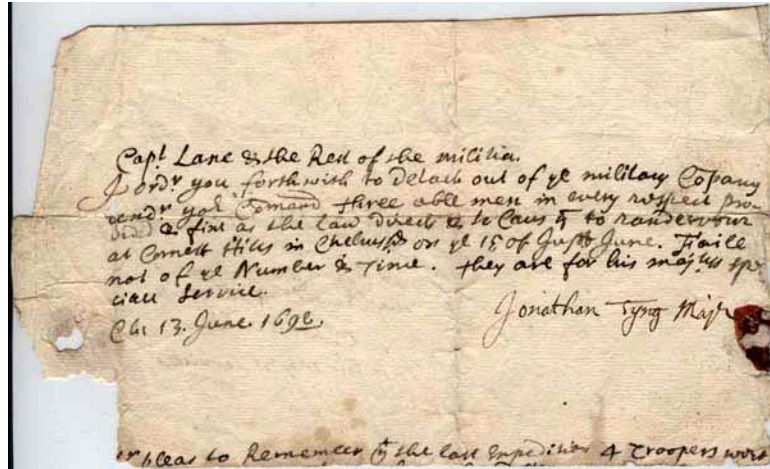 Capt Lane & the Rest of the militia.
I ordr you forthwith to Detach out of ye military Copany
undr yor Comand three able men in every respect pro-
vided & fixt as the law directs & to Caus ym to randevour
at Cornett Hills in Chelmsfd on ye 15 of Inst June. Faile
not of ye Number & Time. they are for his majtis spe
ciall Service.
13. June. 169
Jonathan Tyng Majr
pleas to Remember yt the last Expedition 4 Troopers went